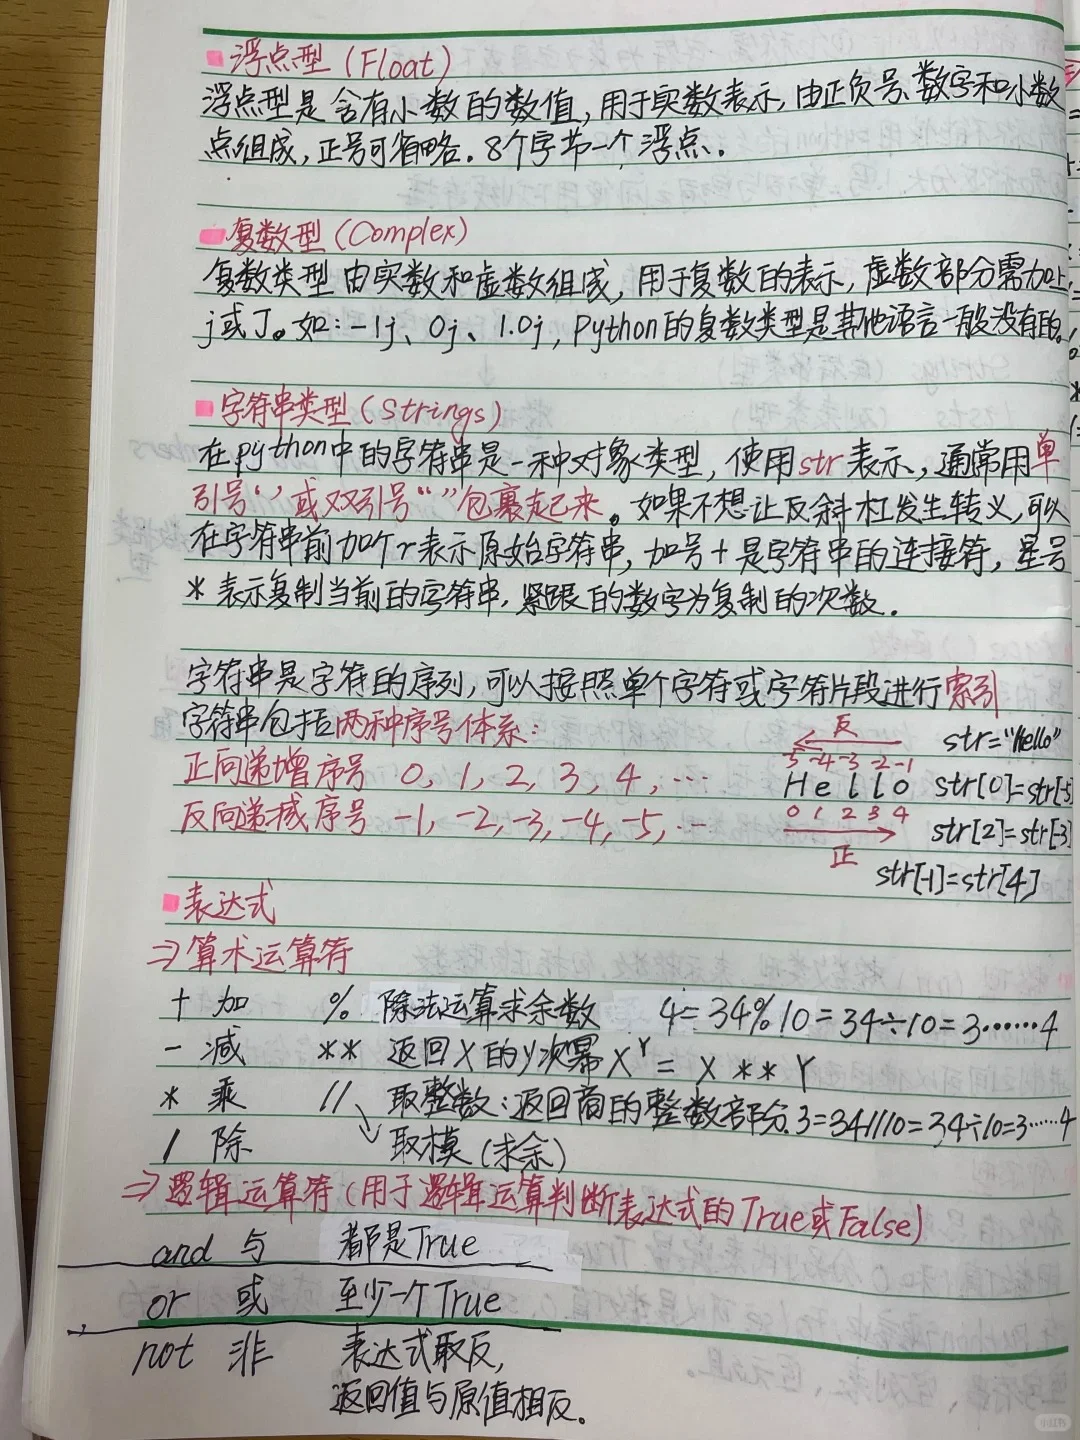 浮点型（Float）
浮点型是含有小数的数值，用于实数表示，由正负号、数字和小数
点组成，正号可省略。8个字节一个浮点。
复数型（Complex）
复数类型由实数和虚数组成，用于复数的表示，虚数部分需加上
j或J。如：-1j、0j、1.0j，Python的复数类型是其他语言一般没有的。
字符串类型（Strings）
在python中的字符串是一种对象类型，使用str表示，通常用单
引号‘’或双引号“”包裹起来。如果不想让反斜杠发生转义，可以
在字符串前加个r表示原始字符串，加号+是字符串的连接符，星号
*表示复制当前的字符串，紧跟的数字为复制的次数。
字符串是字符的序列，可以按照单个字符或字符片段进行索引
字符串包括两种序号体系：
正向递增序号 0, 1, 2, 3, 4, …
反向递减序号 -1, -2, -3, -4, -5, …
反
-5 -4 -3 -2 -1
Hello
0 1 2 3 4
正
str="Hello"
str[0]=str[-5]
str[2]=str[-3]
str[-1]=str[4]
表达式
⇒算术运算符
+ 加 % 除法运算求余数 4=34%10=34÷10=3……4
- 减 ** 返回X的Y次幂 X^Y = X ** Y
* 乘 // 取整数：返回商的整数部分. 3=34//10=34÷10=3……4
/ 除 取模（求余）
⇒逻辑运算符（用于逻辑运算判断表达式的True或False）
and 与 都是True
or 或 至少一个True
not 非 表达式取反，
返回值与原值相反。
小红书